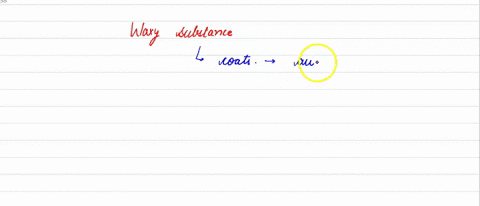 Waxy substance
↳ coats. → su.